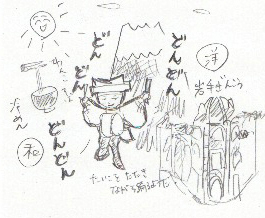 どん
どん
どん
どん
どん
どん
洋
岩手ぎんこう
わんこそば
冷めん
和
たいこをたたき
ながら踊るよ